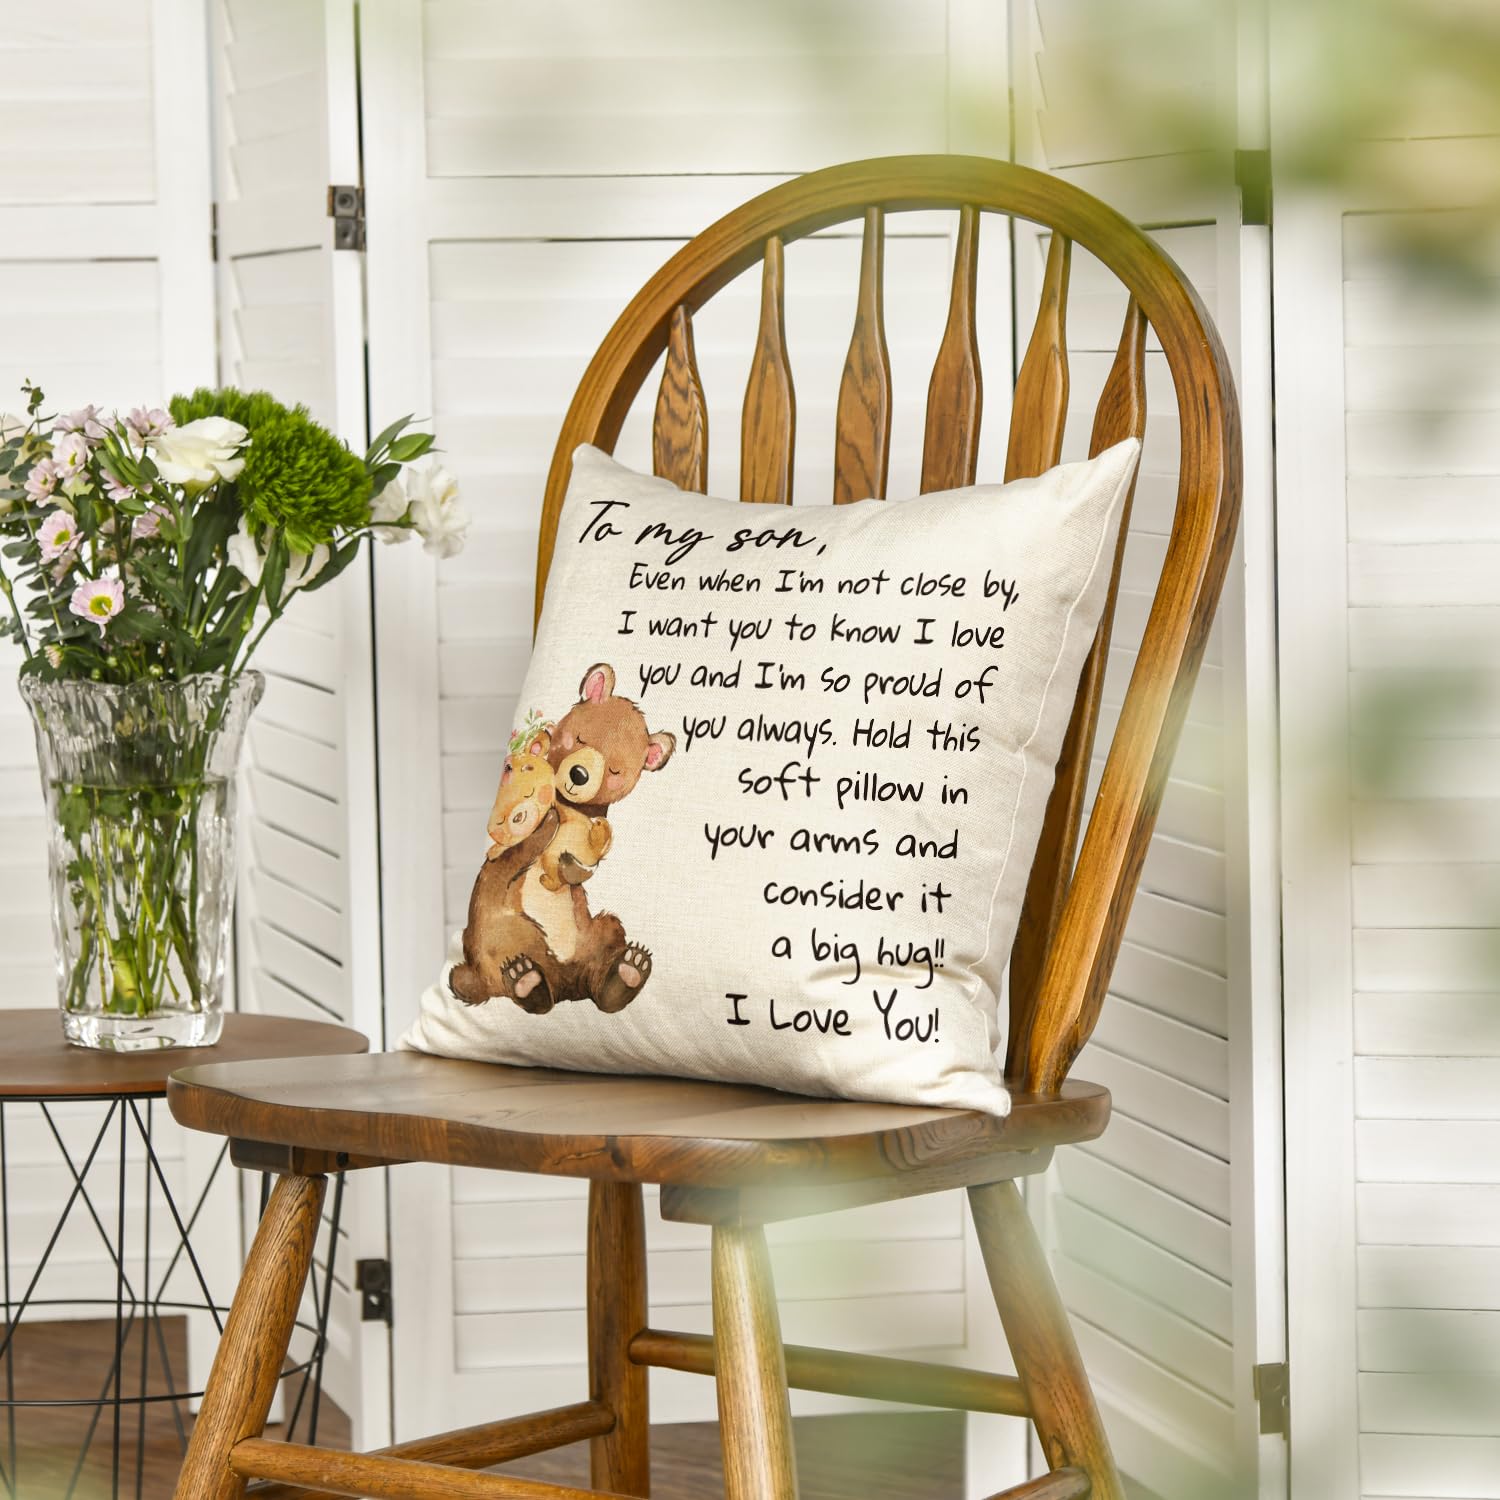 To my son,
Even when I'm not close by,
I want you to know I love
you and I'm so proud of
you always. Hold this
soft pillow in
your arms and
consider it
a big hug!!
I Love You!